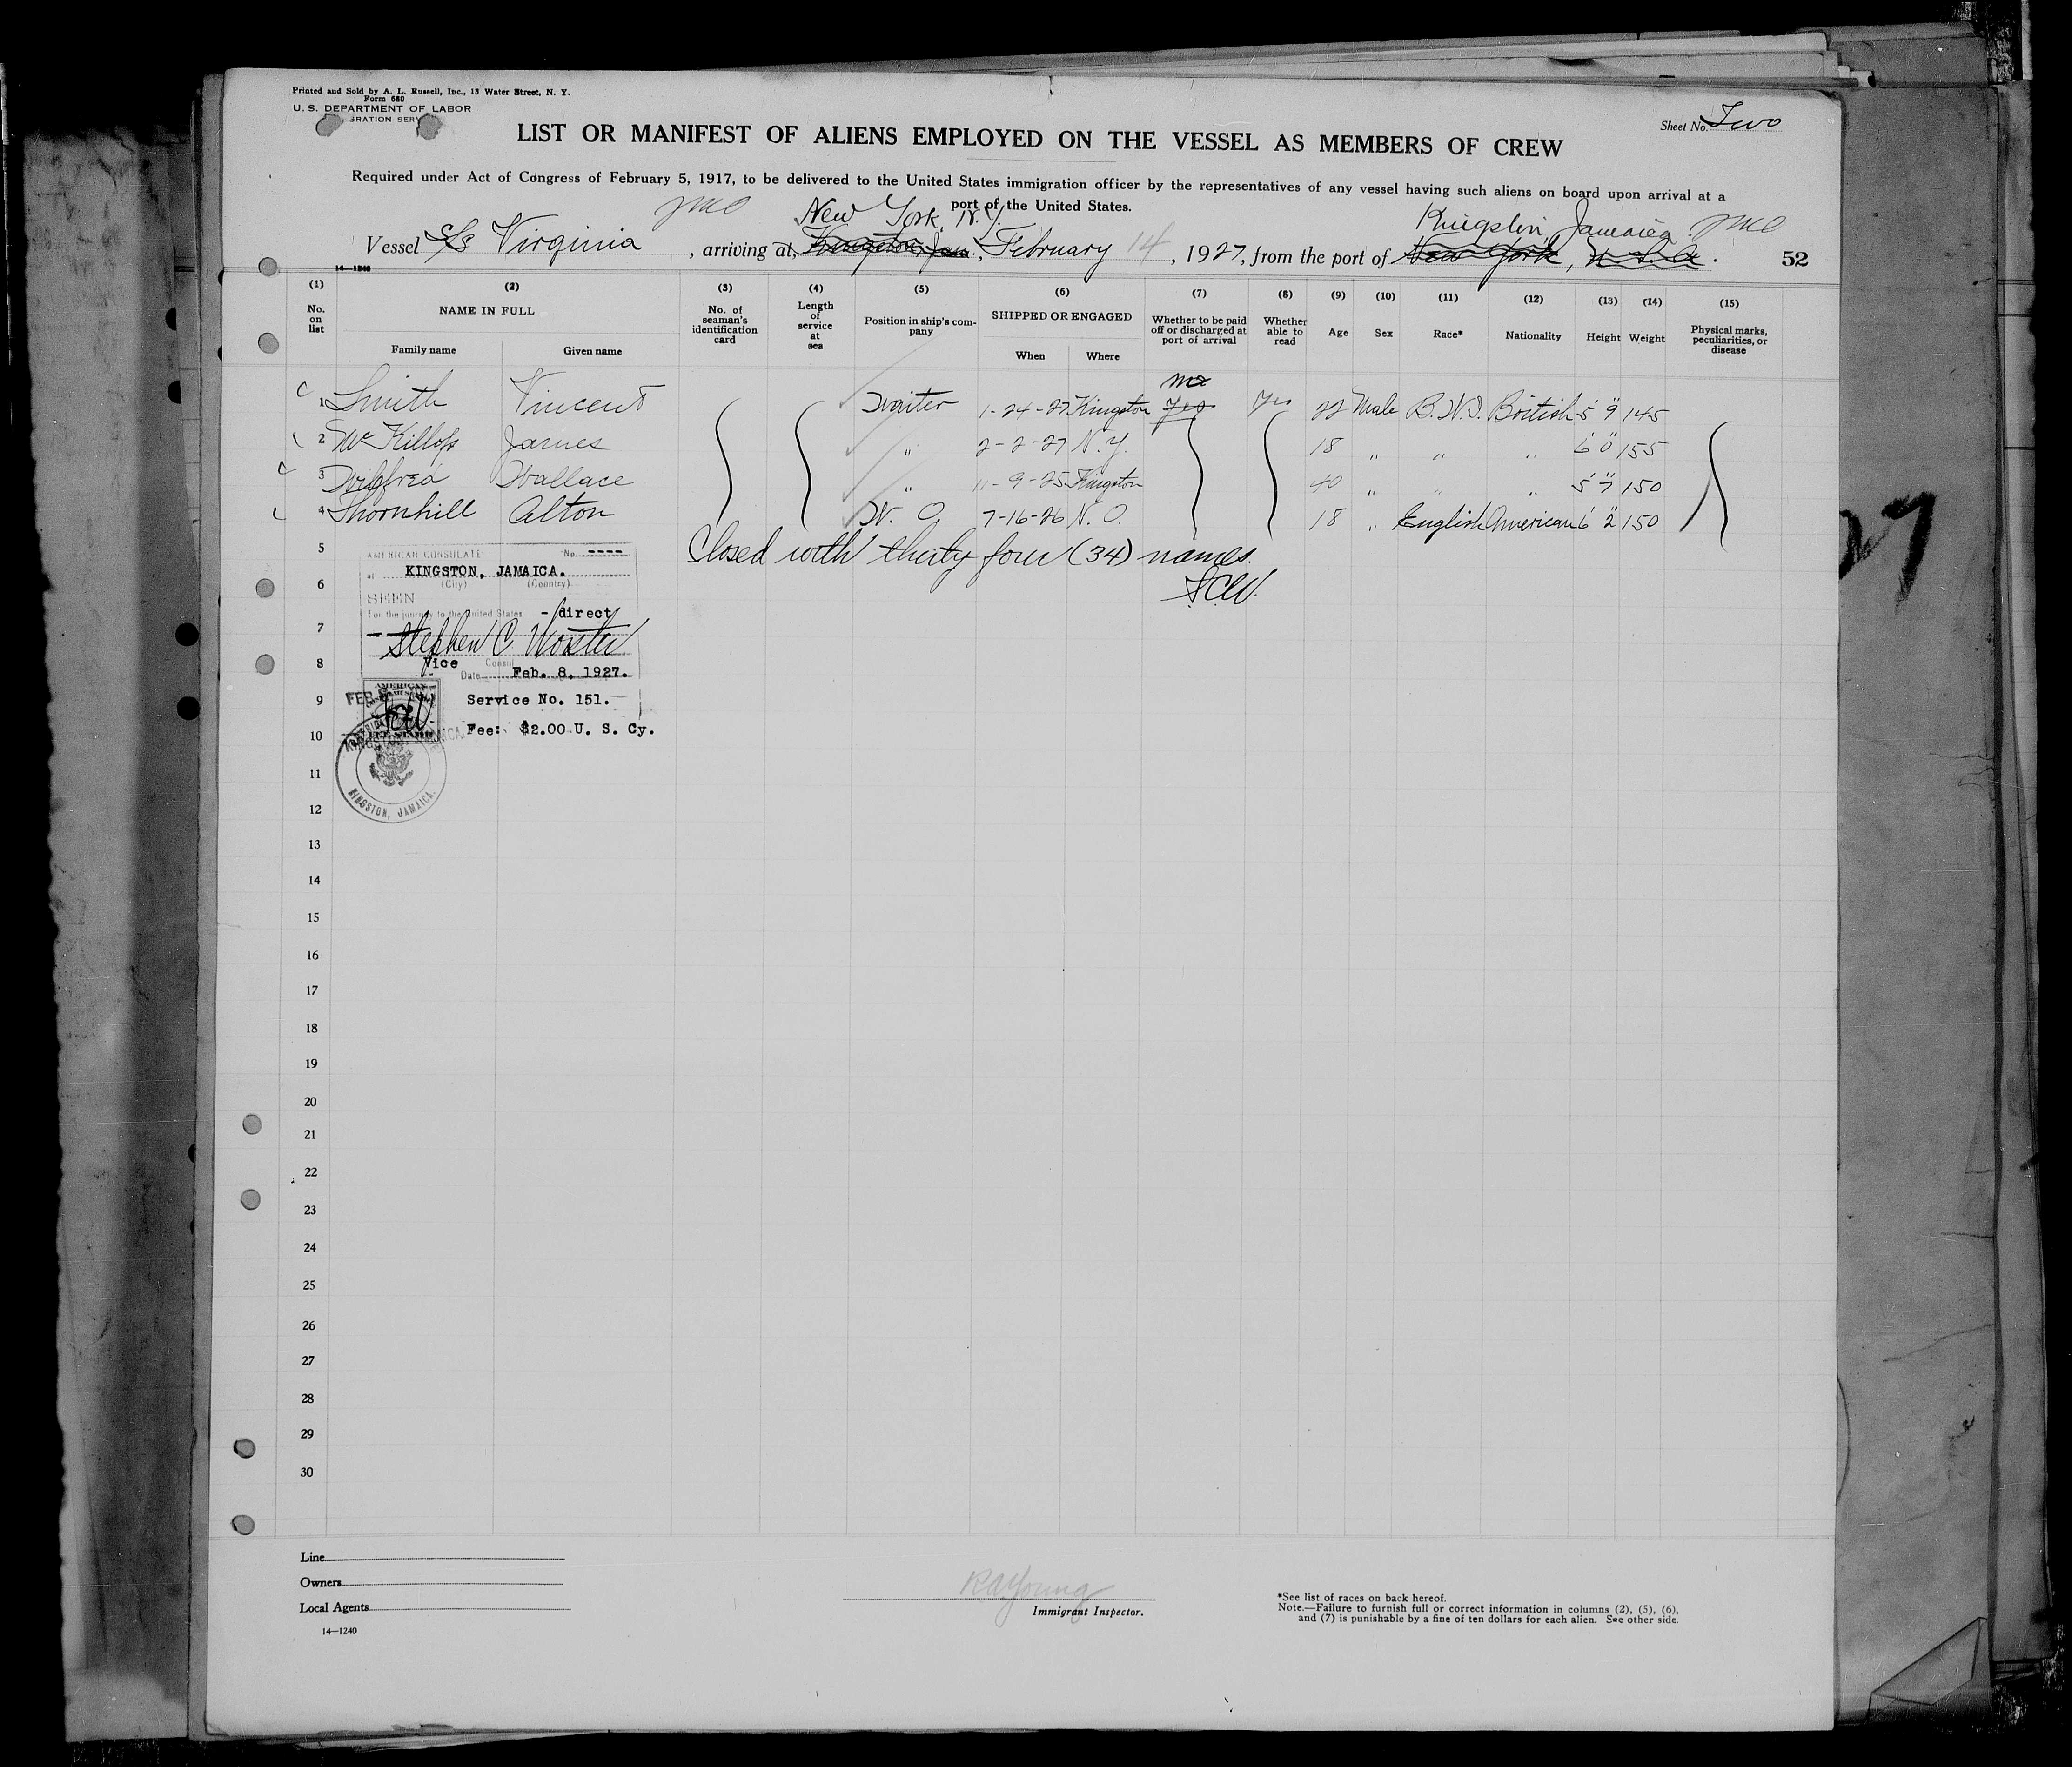 Printed and Sold by A. L. Russell, Inc., 13 Water Street, N. Y.
Form 680
U. S. DEPARTMENT OF LABOR
GRATION SERV
Sheet No. Two
LIST OR MANIFEST OF ALIENS EMPLOYED ON THE VESSEL AS MEMBERS OF CREW
Required under Act of Congress of February 5, 1917, to be delivered to the United States immigration officer by the representatives of any vessel having such aliens on board upon arrival at a
port of the United States.
New York, N.Y. Kingston, Jamaica
Vessel S/S Virginia, arriving at, Kingston, Jam., February 14, 1927, from the port of New York, U. S. A. 52
14—1240
(1) (2) (3) (4) (5) (6) (7) (8) (9) (10) (11) (12) (13) (14) (15)
No. on list NAME IN FULL No. of seaman's identification card Length of service at sea Position in ship's company SHIPPED OR ENGAGED Whether to be paid off or discharged at port of arrival Whether able to read Age Sex Race* Nationality Height Weight Physical marks, peculiarities, or disease
Family name Given name When Where
1 Smith Vincent Waiter 1-24-27 Kingston Yes Yes 22 Male B.W.I. British 5' 9" 145
2 McKillop James " 2-2-27 N.Y. 18 " " " 6' 0" 155
3 Wilfred Wallace " 11-9-25 Kingston 40 " " " 5' 7" 150
4 Thornhill Alton W. O. 7-16-26 N. O. 18 " English American 6' 2" 150
Closed with thirty four (34) names.
S.C.W.
5
6
7
8
9
10
11
12
13
14
15
16
17
18
19
20
21
22
23
24
25
26
27
28
29
30
AMERICAN CONSULATE No. ----
at KINGSTON, JAMAICA.
(City) (Country)
SEEN
For the journey to the United States - direct
Stephen C. Worster
Vice Consul
Date Feb. 8, 1927.
Service No. 151.
Fee: $2.00 U. S. Cy.
AMERICAN
KINGSTON, JAMAICA.
Line
Owners
Local Agents
14—1240
R A Young
Immigrant Inspector.
*See list of races on back hereof.
Note.—Failure to furnish full or correct information in columns (2), (5), (6),
and (7) is punishable by a fine of ten dollars for each alien. See other side.